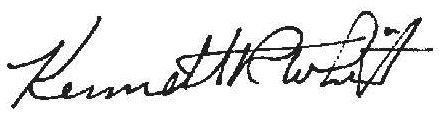 Kenneth R. Whitt